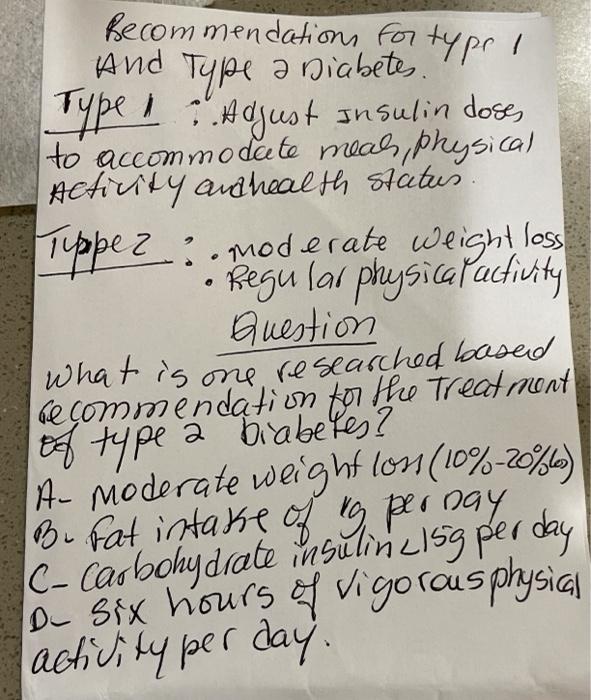 Recommendations for type 1
And Type 2 Diabetes.
Type 1 : . Adjust Insulin doses
to accommodate meals, physical
Activity and health status.
Type 2 : . moderate weight loss
. Regular physical activity
Question
What is one researched based
recommendation for the Treatment
of type 2 Diabetes?
A- Moderate weight loss (10%-20%)
B- Fat intake of 1g per Day
C- Carbohydrate insulin <15g per day
D- Six hours of vigorous physical
activity per day.